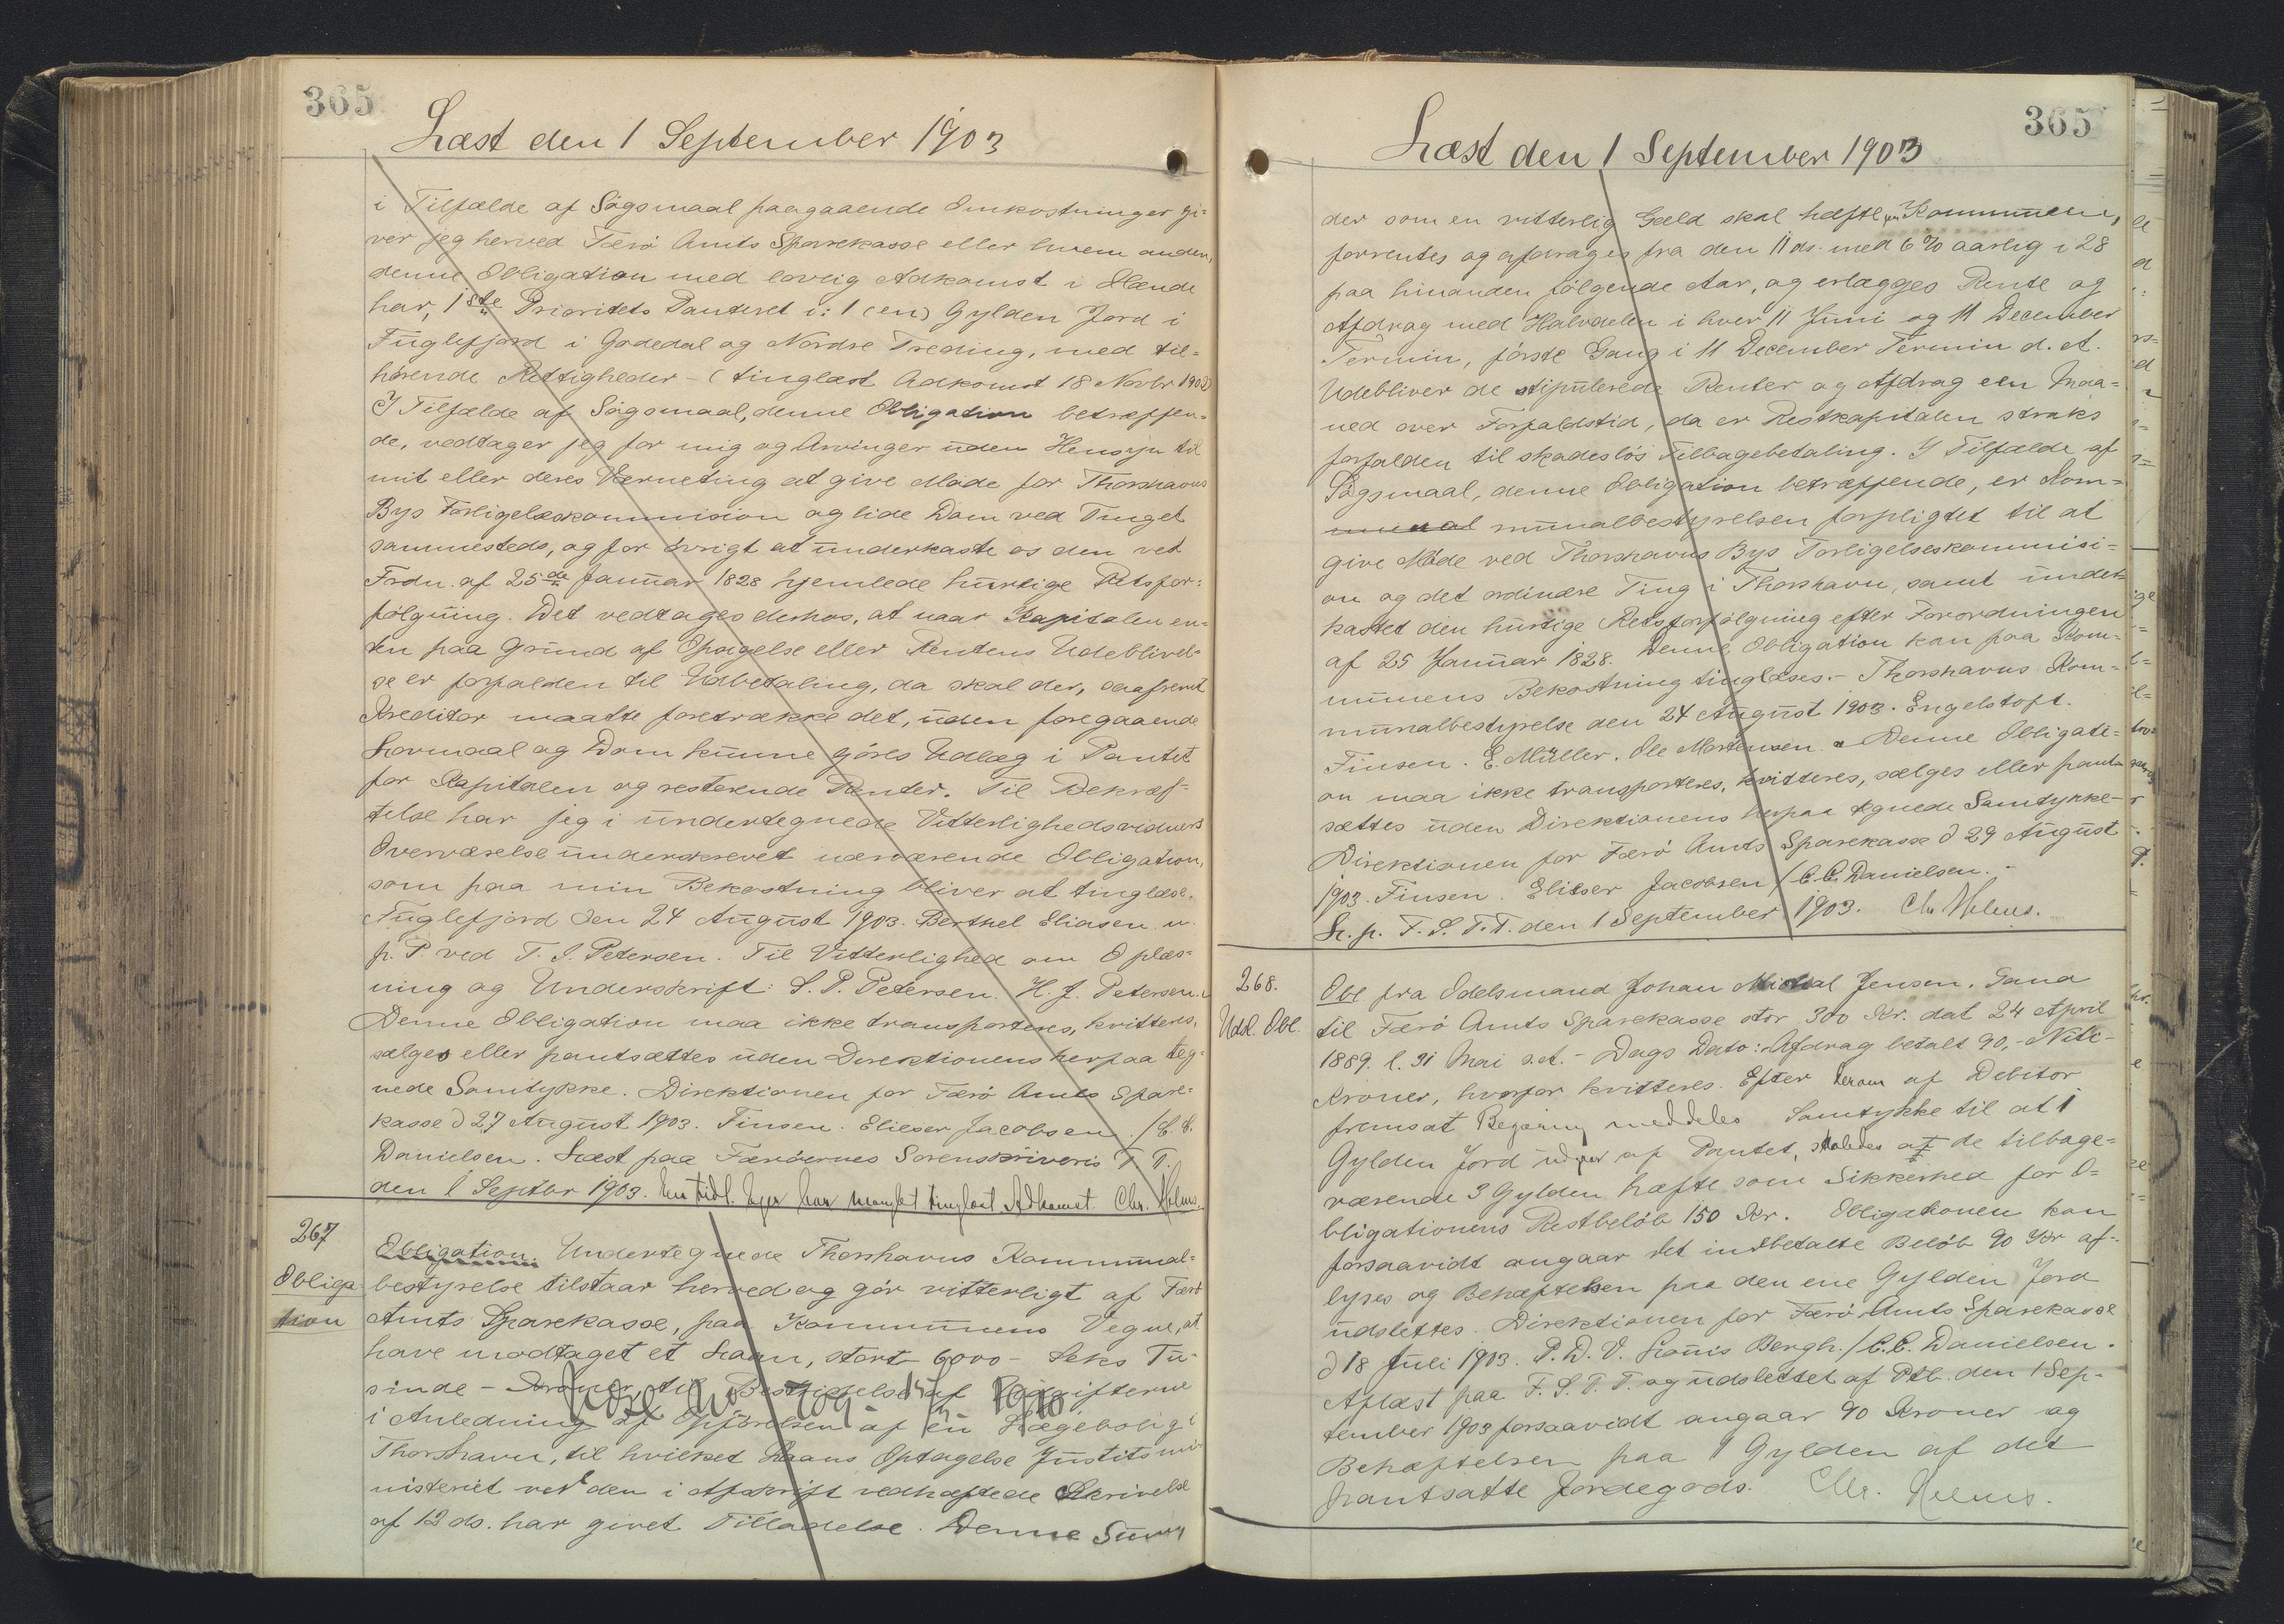 365
Læst den 1 September 1903
i Tilfælde af Sögsmaal paagaaende Omkostninger gi-
ver jeg herved Færö Amts Sparekasse eller hvem anden,
denne Obligation med lovlig Adkomst i Hænde
har, 1ste Prioritets Panteret i: 1 (en) Gylden Jord i
Fuglefjord i Gadedal og Nordre Treding, med til-
hörende Rettigheder - (tinglæst Adkomst 18 Novbr 1902)
I Tilfælde af Sögsmaal, denne Obligation betræffen-
de, vedtager jeg for mig og Arvinger uden Hensyn til
mit eller deres Værneting at give Möde for Thorshavns
Bys Forligelseskommision og lide Dom ved Tinget
sammesteds, og for övrigt at underkaste os den ved
Frdn. af 25de Januar 1828 hjemlede hurtige Retsfor-
fölgning. Det vedtages derhos, at naar Kapitalen en-
ten paa Grund af Opsigelse eller Rentens Udeblivel-
se er forfalden til Udbetaling, da skal der, saafremt
Kreditor maatte foretrække det, uden foregaaende
Lovmaal og Dom kunne göres Udlæg i Pantet
for Kapitalen og resterende Renter. Til Bekræf-
telse har jeg i undertegnede Vitterlighedsvidners
Overværelse underskrevet nærværende Obligation,
som paa min Bekostning bliver at tinglæse.
Fuglefjord den 24 August 1903. Berthel Eliasen m.
p. P ved T. J. Petersen. Til Vitterlighed om Oplæs-
ning og Underskrift: S. P. Petersen. H. J. Petersen.
Denne Obligation maa ikke transporteres, kvitteres,
sælges eller pantsættes uden Direktionens herpaa teg-
nede Samtykke. Direktionen for Færö Amts Spare-
kasse d 27 August 1903. Finsen. Elieser Jacobsen. / C. C.
Danielsen. Læst paa Færöernes Sorenskriveris T. T.
den 1 Septbr 1903. En tidl. Ejer har manglet tinglæst Adkomst. Chr. Helms.
267
Obliga-
tion
Obligation. Undertegnede Thorshavns Kommunal-
bestyrelse tilstaar herved og gör vitterligt af Færö
Amts Sparekasse, paa Kommunens Vegne, at
have modtaget et Laan, stort 6000 - Seks Tu-
sinde - Kroner, til Bestridelse af Udgifterne
i Anledning af Opförelsen af en Lægebolig i
Thorshavn, til hvilket Laans Optagelse Justitsmi-
nisteriet ved den i Afskrift vedhæftede Skrivelse
af 12 ds. har givet Tilladelse. Denne Sum
365
Læst den 1 September 1903
der som en vitterlig Gæld skal hæfte paa Kommunen,
forrentes og afdrages fra den 11 ds. med 6% aarlig i 28
paa hinanden fölgende Aar, og erlægges Rente og
Afdrag med Halvdelen i hver 11 Juni og 11 December
Termin, förste Gang i 11 December Termin d. A.
Udebliver de stipulerede Renter og Afdrag een Maa-
ned over Forfaldstid, da er Restkapitalen straks
forfalden til skadeslös Tilbagebetaling. I Tilfælde af
Sögsmaal, denne Obligation betræffende, er Kom-
munalbestyrelsen forpligtet til at
give Möde ved Thorshavns Bys Forligelseskommisi-
on og det ordinære Ting i Thorshavn, samt under-
kastet den hurtige Retsforfölgning efter Forordningen
af 25 Januar 1828. Denne Obligation kan paa Kom-
munens Bekostning tinglæses. - Thorshavns Kom-
munalbestyrelse den 24 August 1903. Engelstoft.
Finsen. E. Müller. Ole Mortensen. - Denne Obligati-
on maa ikke transporteres, kvitteres, sælges eller pant-
sættes uden Direktionens herpaa tegnede Samtykke-
Direktionen for Færö Amts Sparekasse d 29 August
1903. Finsen. Elieser Jacobsen / C. C. Danielsen. -
L. p. F. S. T. T. den 1 September 1903. Chr. Helms.
268.
Udsl. Obl.
Obl fra Odelsmand Johan Michal Jensen. Sand
til Færö Amts Sparekasse stor 300 Kr. dat 24 April
1889. l. 31 Mai s. A. - Dags Dato: Afdrag betalt 90,- Niti-
Kroner, hvorfor kvitteres. Efter herom af Debitor
fremsat Begæring meddeles Samtykke til at 1
Gylden Jord udgaar af Pantet, saaledes at de tilbage-
værende 3 Gylden hæfte som Sikkerhed for O-
bligationens Restbelöb 150 Kr. Obligationen kan
forsaavidt angaar det indbetalte Belöb 90 Kr af-
lyses og Behæftelsen paa den ene Gylden Jord
udslettes. Direktionen for Færö Amts Sparekasse
d 18 Juli 1903. P. D. V. Louis Bergh. / C. C. Danielsen.
Aflæst paa F. S. T. T. og udslettet af Ptb. den 1 Sep-
tember 1903 forsaavidt angaar 90 Kroner og
Behæftelsen paa 1 Gylden af det
pantsatte Jordegods. Chr. Helms.